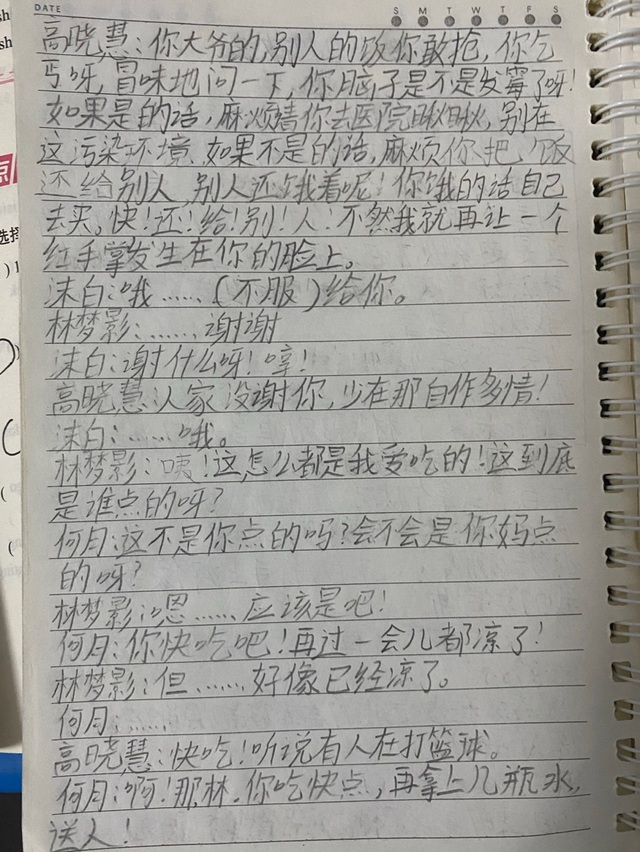 DATE
S M T W T F S
高晓慧：你大爷的，别人的饭你敢抢，你乞
丐呀，冒昧地问一下，你脑子是不是发霉了呀！
如果是的话，麻烦请你去医院瞅瞅，别在
这污染环境，如果不是的话，麻烦你把饭
还给别人，别人还饿着呢！你饿的话自己
去买，快！还！给！别！人！不然我就再让一个
红手掌发生在你的脸上。
沫白：哦……（不服）给你。
林梦影：……谢谢
沫白：谢什么呀！哼！
高晓慧：人家没谢你，少在那自作多情！
沫白：……哦。
林梦影：咦！这怎么都是我爱吃的！这到底
是谁点的呀？
何月：这不是你点的吗？会不会是你妈点
的呀？
林梦影：嗯……应该是吧！
何月：你快吃吧！再过一会儿都凉了！
林梦影：但……好像已经凉了。
何月：……
高晓慧：快吃！听说有人在打篮球。
何月：啊！那林，你吃快点，再拿上几瓶水，
送人！